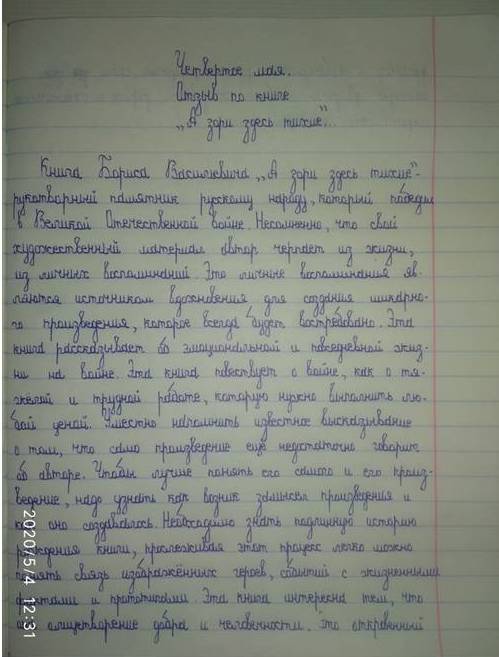 Четвертое мая.
Отзыв по книге
„А зори здесь тихие"...
Книга Бориса Васильевича „А зори здесь тихие"-
рукотворный памятник русскому народу, который победил
в Великой Отечественной войне. Несомненно, что свой
художественный материал автор черпает из жизни,
из личных воспоминаний. Это личные воспоминания яв-
ляются источником вдохновения для создания шикарно-
го произведения, которое всегда будет востребовано. Эта
книга рассказывает об эмоциональной и повседневной жиз-
ни на войне. Эта книга повествует о войне, как о тя-
желой и трудной работе, которую нужно выполнить лю-
бой ценой. Уместно напомнить известное высказывание
о том, что само произведение ещё недостаточно говорит
об авторе. Чтобы лучше понять его самого и его произ-
ведение, надо узнать как возник замысел произведения и
как оно создавалось. Необходимо знать подлинную историю
рождения книги, прослеживая этот процесс легко можно
понять связь изображённых героев, событий с жизненными
фактами и прототипами. Эта книга интересна тем, что
олицетворение добра и человечности. Это откровенный
2020/5/4 12:31